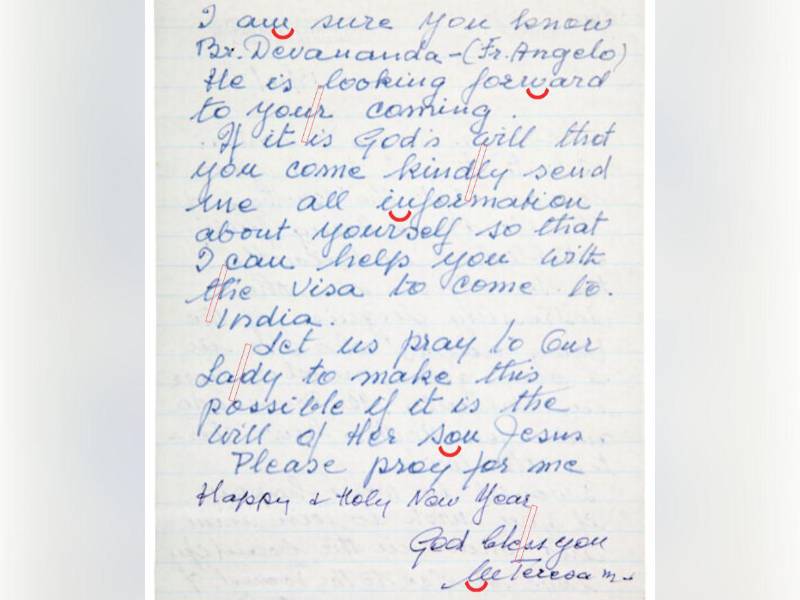 I am sure you know
Br. Devananda - (Fr. Angelo)
He is looking forward
to your coming.
If it is God's will that
you come kindly send
me all information
about yourself so that
I can help you with
the Visa to come to.
India.
Let us pray to Our
Lady to make this
possible if it is the
will of Her son Jesus.
Please pray for me
Happy & Holy New Year
God bless you
M Teresa m.c